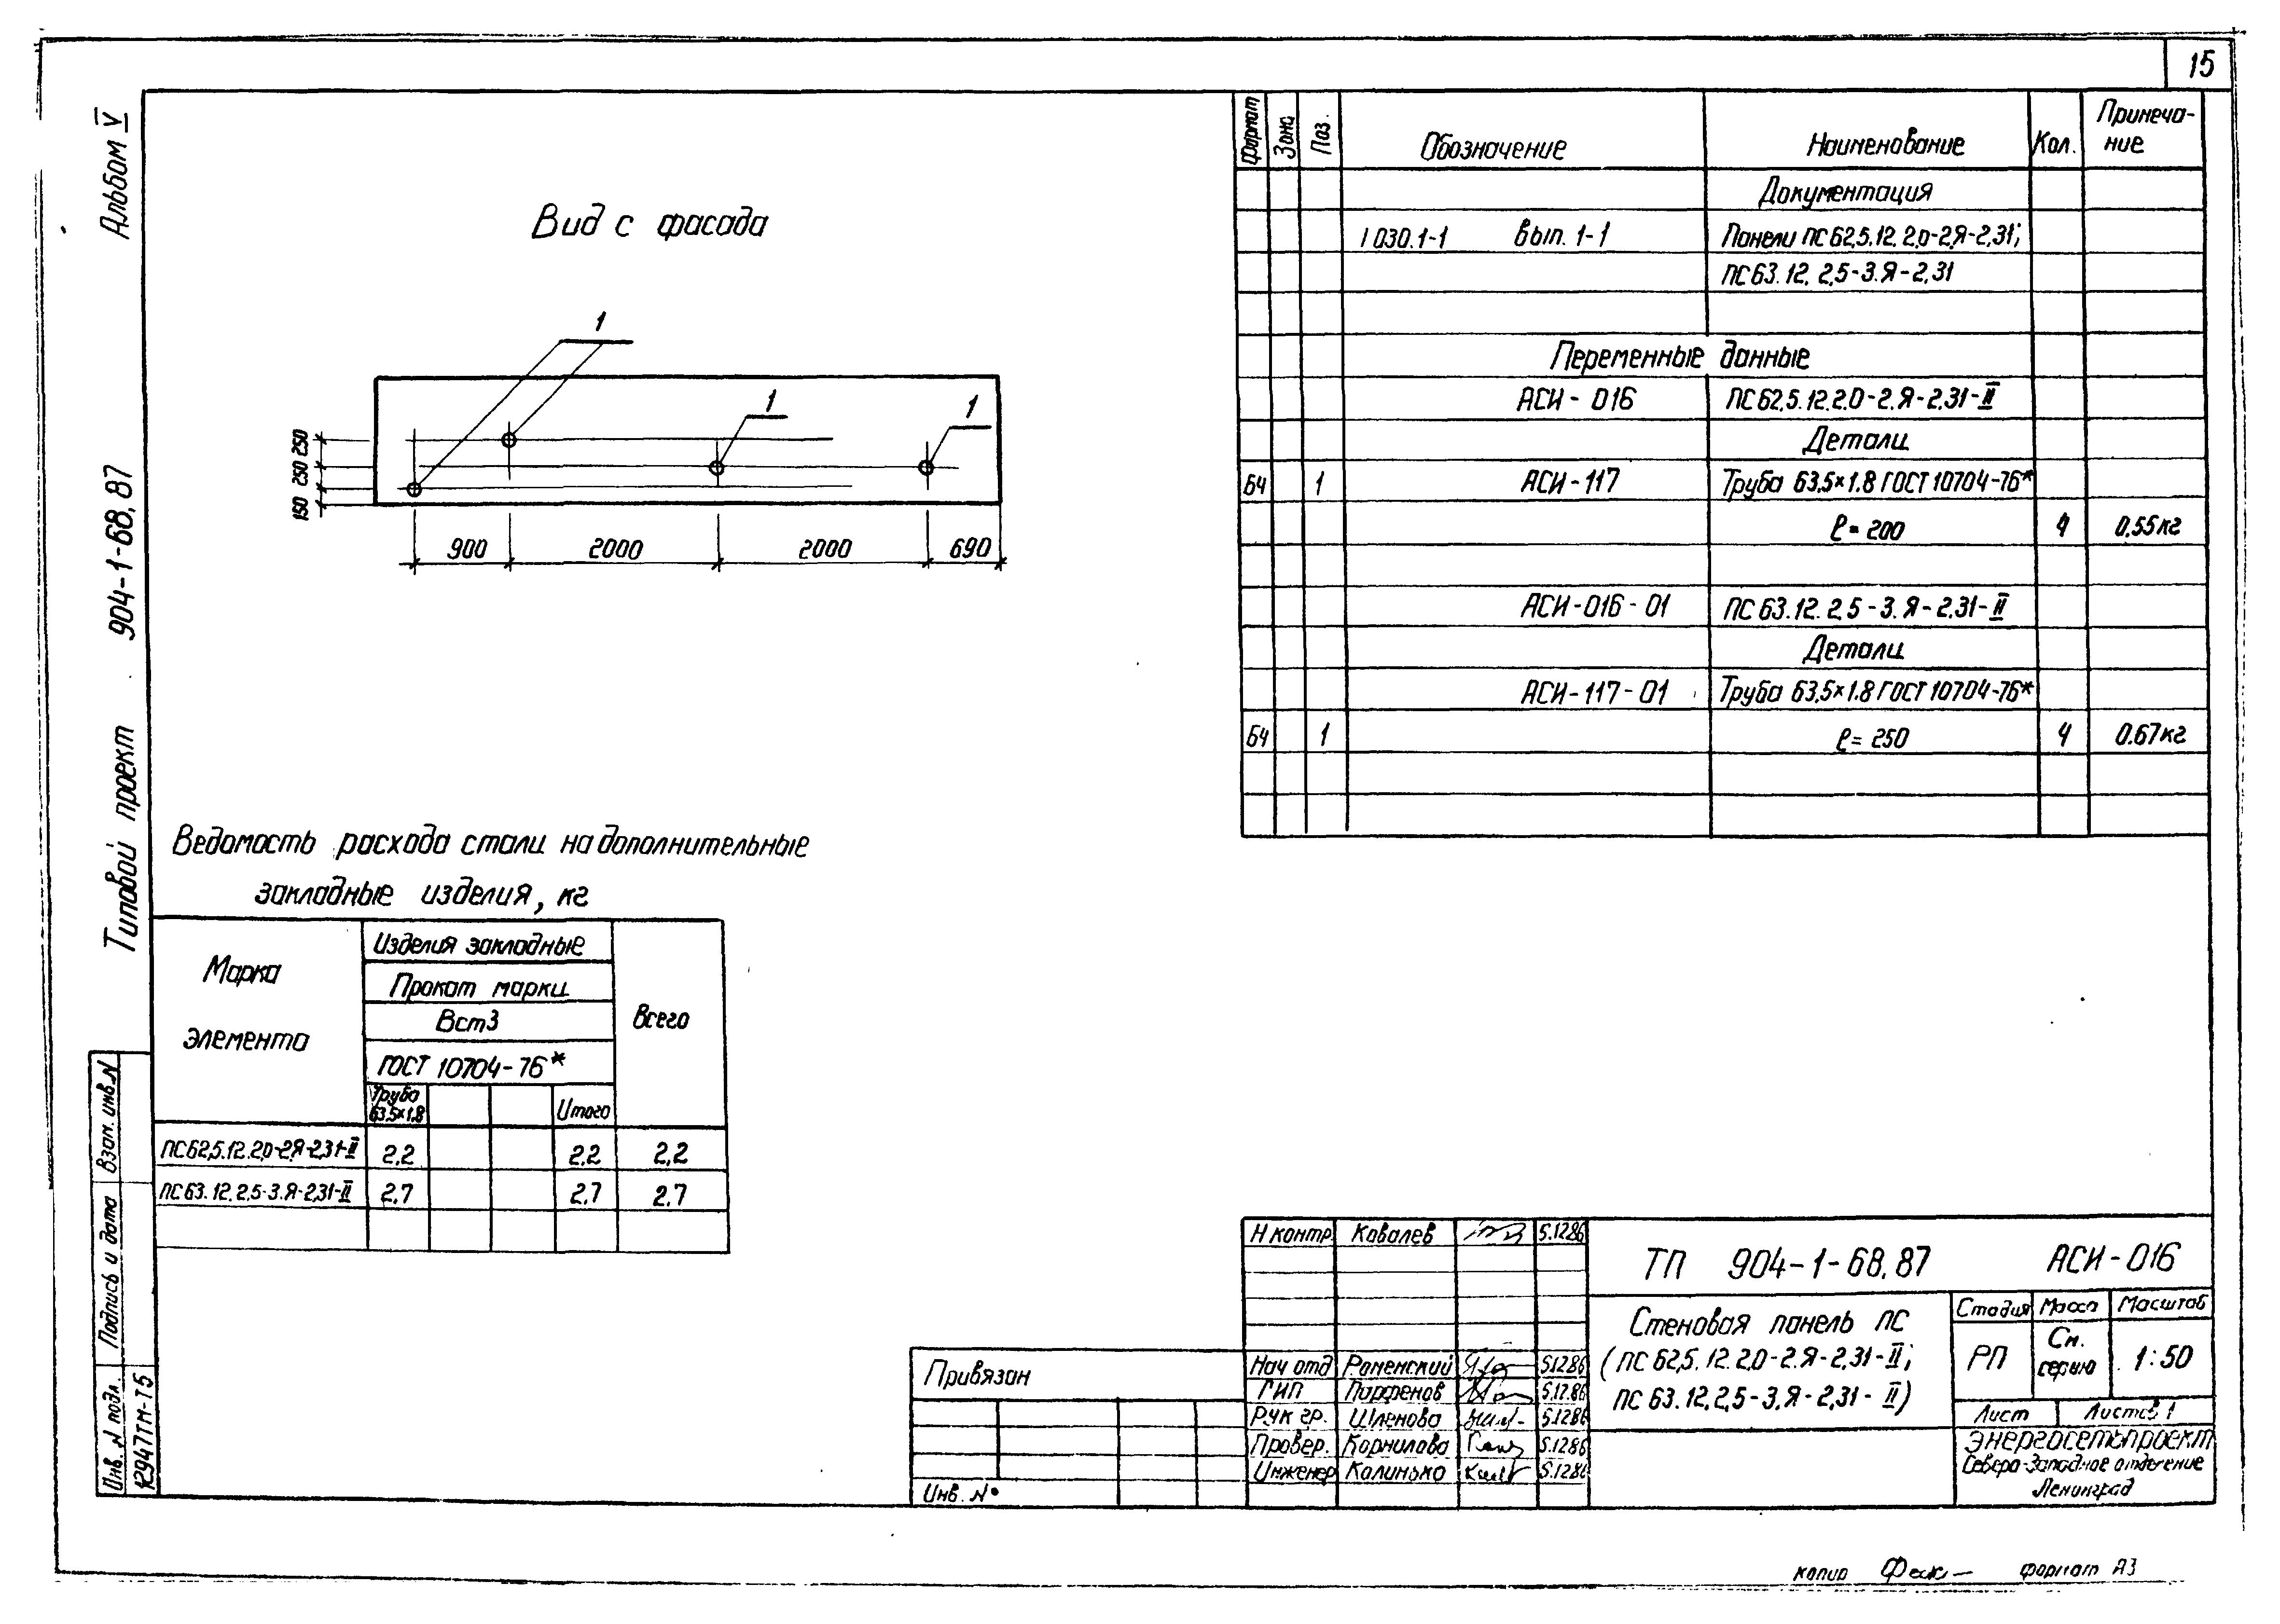 15
Альбом V
Типовой проект 904-1-68.87
Вид с фасада
1
1
1
250
250
150
900
2000
2000
690
Формат
Зона
Поз.
Обозначение
Наименование
Кол.
Примеча-
ние
Документация
1.030.1-1 Вып. 1-1
Панели ПС62,5.12.2,0-2.Я-2,31;
ПС63.12.2,5-3.Я-2,31
Переменные данные
АСИ-016 ПС62,5.12.2,0-2.Я-2,31-II
Детали
БЧ 1 АСИ-117 Труба 63,5×1.8 ГОСТ 10704-76*
ℓ=200 4 0.55кг
АСИ-016-01 ПС63.12.2,5-3.Я-2,31-II
Детали
АСИ-117-01 Труба 63,5×1.8 ГОСТ 10704-76*
БЧ 1 ℓ=250 4 0.67кг
Ведомость расхода стали на дополнительные
закладные изделия, кг
Марка
элемента
Изделия закладные
Прокат марки
Вст3
ГОСТ 10704-76*
Труба
63,5×1,8
Итого
Всего
ПС62,5.12.2,0-2.Я-2,31-II 2,2 2,2 2,2
ПС63.12.2,5-3.Я-2,31-II 2,7 2,7 2,7
Взам. инв. N
Подпись и дата
Инв. N подл.
12947тм-т5
Привязан
Инв. N°
Н контр. Ковалев 5.1286
Нач отд Раменский 5.1286
ГИП Парфенов 5.12.86
Рук гр. Шленова 5.1286
Провер. Корнилова 5.1286
Инженер Калинько 5.1286
ТП 904-1-68.87 АСИ-016
Стеновая панель ПС
(ПС62,5.12.2,0-2.Я-2,31-II;
ПС 63.12.2,5-3.Я-2,31-II)
Стадия Масса Масштаб
РП См. серию 1:50
Лист Листов 1
Энергосетьпроект
Северо-Западное отделение
Ленинград
копир
формат А3